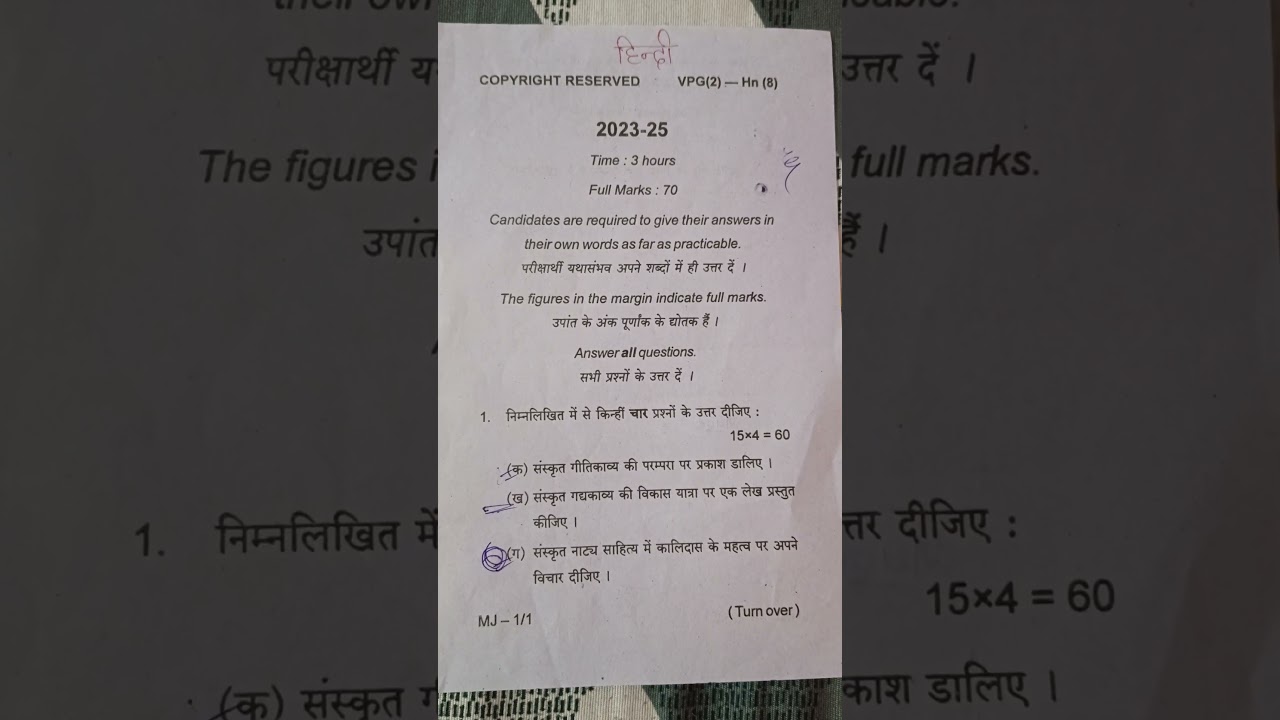 हिन्दी
COPYRIGHT RESERVED VPG(2) — Hn (8)
2023-25
Time : 3 hours
Full Marks : 70
Candidates are required to give their answers in
their own words as far as practicable.
परीक्षार्थी यथासंभव अपने शब्दों में ही उत्तर दें ।
The figures in the margin indicate full marks.
उपांत के अंक पूर्णांक के द्योतक हैं ।
Answer all questions.
सभी प्रश्नों के उत्तर दें ।
1. निम्नलिखित में से किन्हीं चार प्रश्नों के उत्तर दीजिए :
15×4 = 60
(क) संस्कृत गीतिकाव्य की परम्परा पर प्रकाश डालिए ।
(ख) संस्कृत गद्यकाव्य की विकास यात्रा पर एक लेख प्रस्तुत
कीजिए ।
(ग) संस्कृत नाट्य साहित्य में कालिदास के महत्व पर अपने
विचार दीजिए ।
MJ – 1/1 (Turn over)